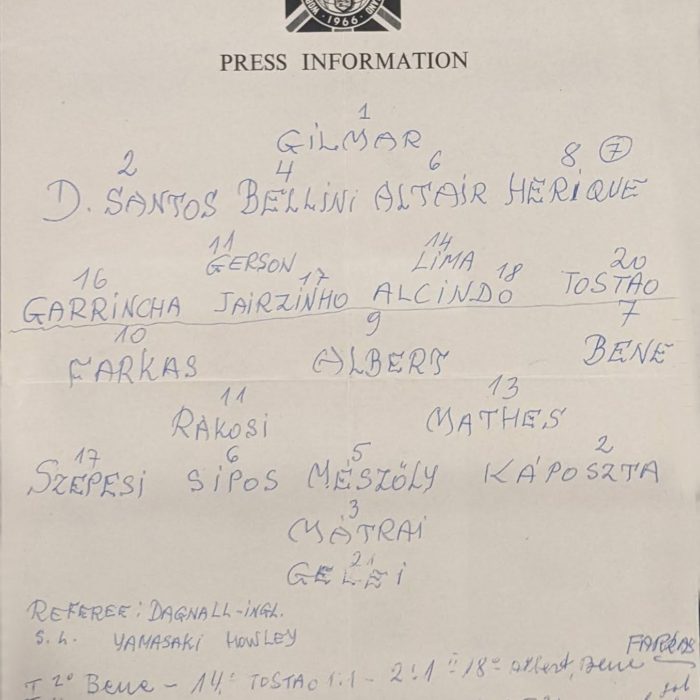 1966
PRESS INFORMATION
1
GILMAR
2 4 6 8 7
D. SANTOS BELLINI ALTAIR HERIQUE
11 14
GERSON LIMA
16 17 18 20
GARRINCHA JAIRZINHO ALCINDO TOSTAO
10 9 7
FARKAS ALBERT BENE
11 13
RÁKOSI MATHES
17 6 5 2
SZEPESI SIPOS MÉSZÖLY KÁPOSZTA
3
MÁTRAI
21
GELEI
REFEREE: DAGNALL-INGL.
S.L. YAMASAKI HOWLEY
FARKAS
I 2º Bene - 14º TOSTAO 1:1 - 2:1 18º Albert, Bene
gol